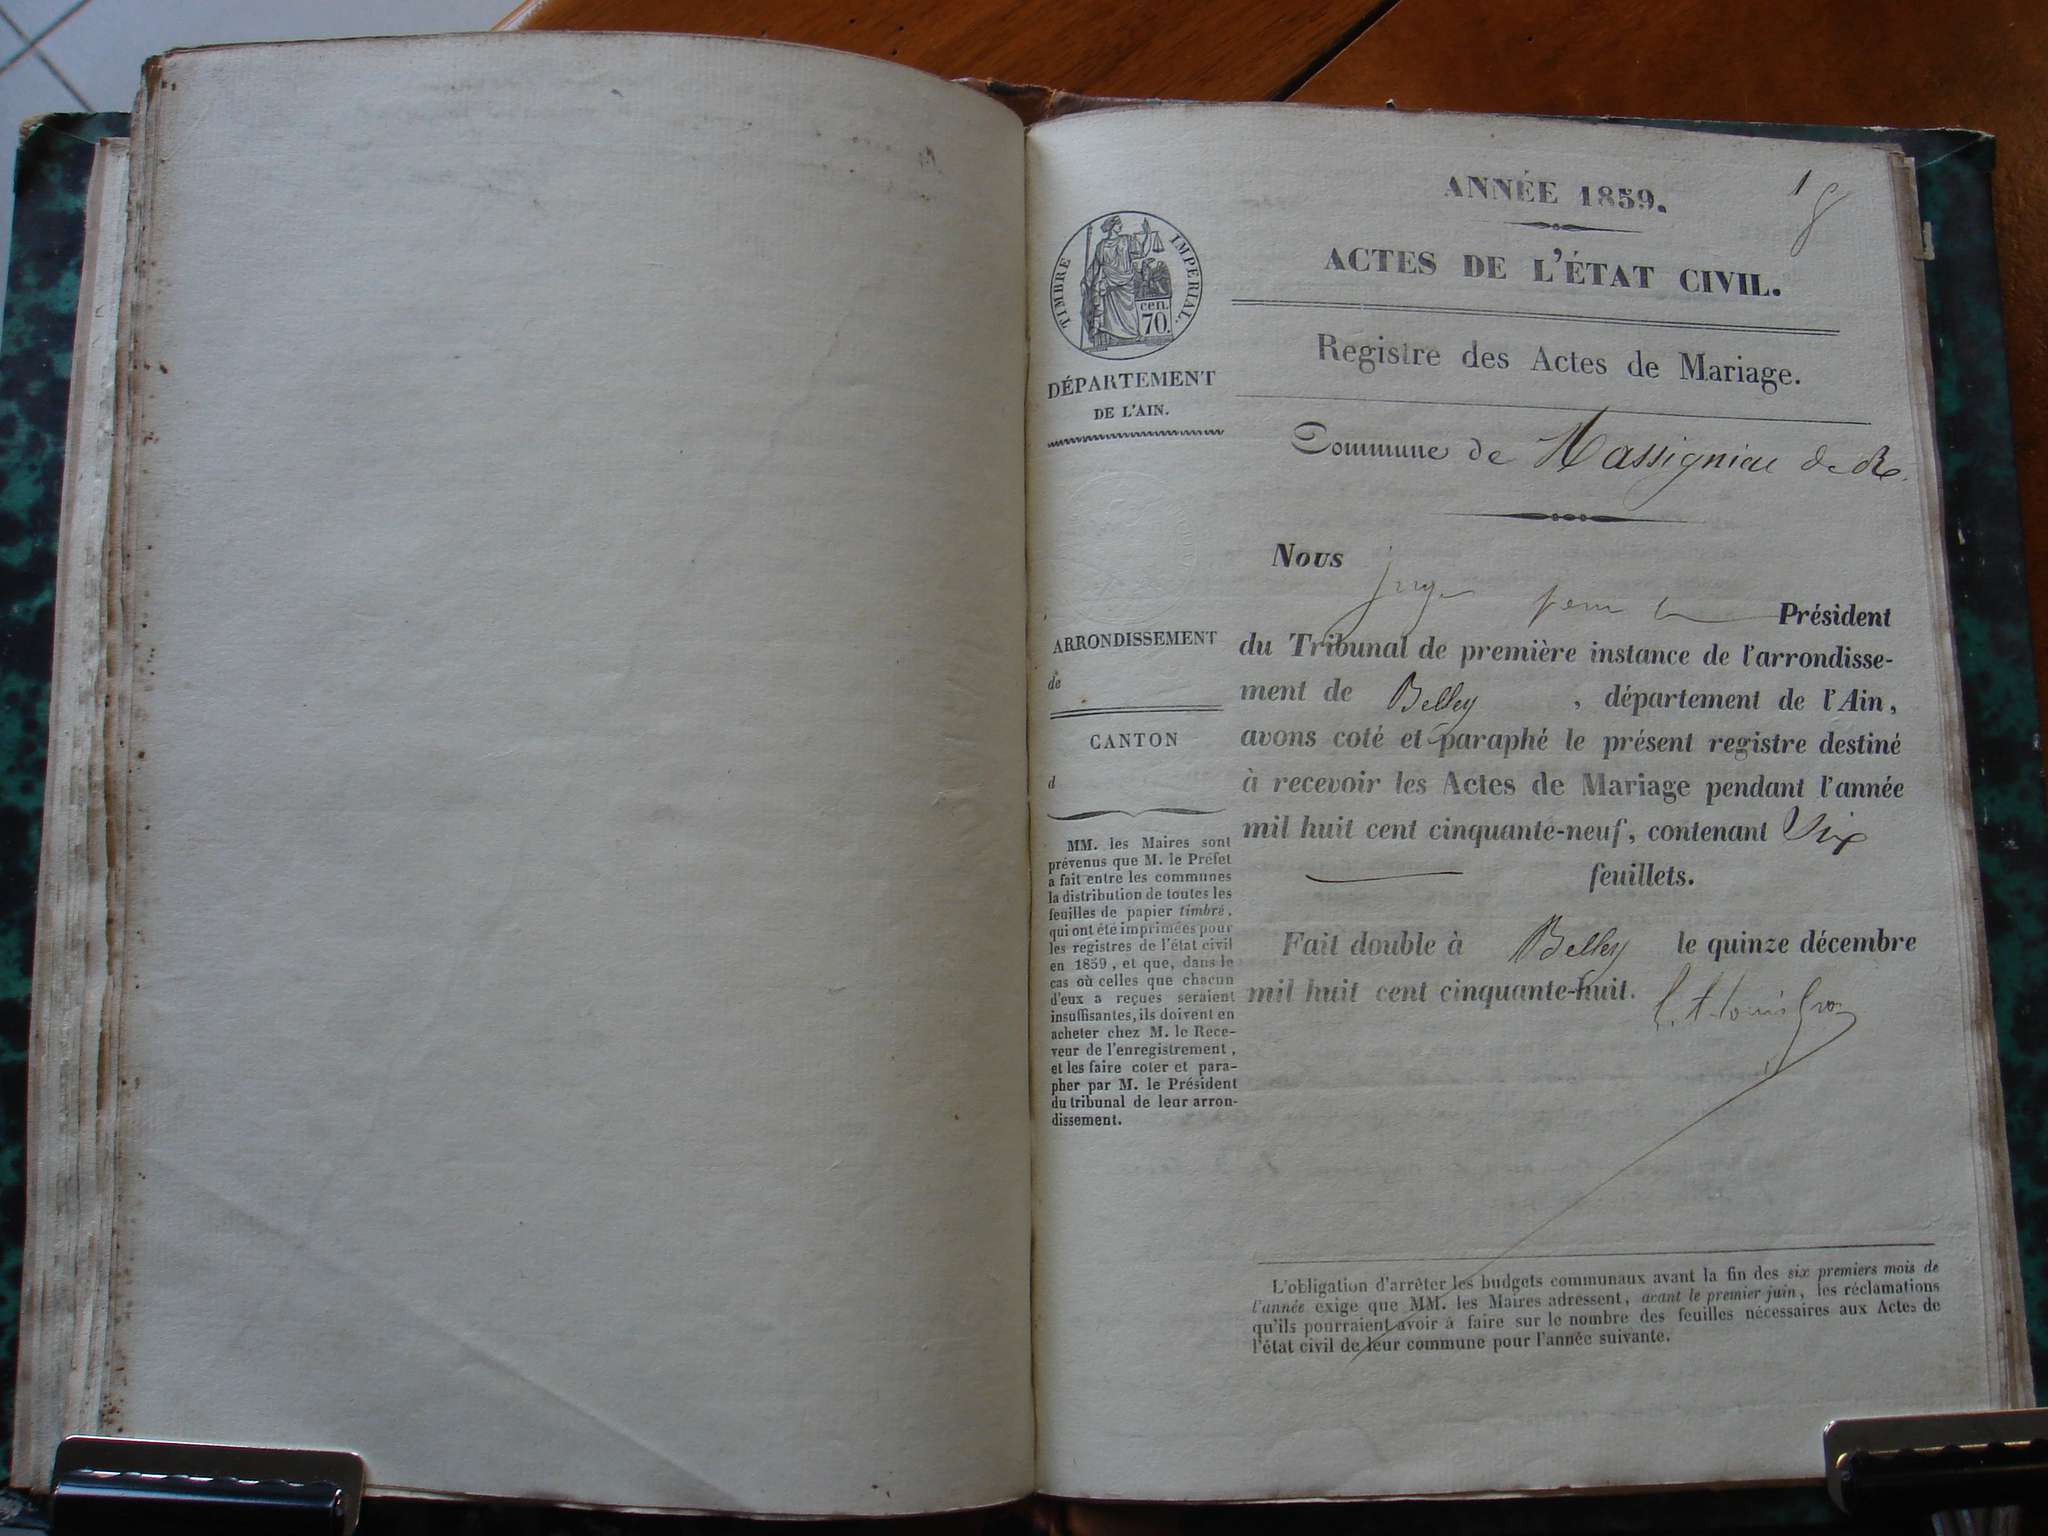 ANNÉE 1859.
1
ACTES DE L'ÉTAT CIVIL.
TIMBRE IMPERIAL.
cen.
70.
DÉPARTEMENT
DE L'AIN.
Registre des Actes de Mariage.
Commune de Massignieu de R.
ARRONDISSEMENT
de
CANTON
d
MM. les Maires sont
prévenus que M. le Préfet
a fait entre les communes
la distribution de toutes les
feuilles de papier timbré,
qui ont été imprimées pour
les registres de l'état civil
en 1859, et que, dans le
cas où celles que chacun
d'eux a reçues seraient
insuffisantes, ils doivent en
acheter chez M. le Rece-
veur de l'enregistrement,
et les faire coter et para-
pher par M. le Président
du tribunal de leur arron-
dissement.
Nous
juge Président
du Tribunal de première instance de l'arrondisse-
ment de Belley, département de l'Ain,
avons coté et paraphé le présent registre destiné
à recevoir les Actes de Mariage pendant l'année
mil huit cent cinquante-neuf, contenant Six
feuillets.
Fait double à Belley le quinze décembre
mil huit cent cinquante-huit.
L'obligation d'arrêter les budgets communaux avant la fin des six premiers mois de
l'année exige que MM. les Maires adressent, avant le premier juin, les réclamations
qu'ils pourraient avoir à faire sur le nombre des feuilles nécessaires aux Actes de
l'état civil de leur commune pour l'année suivante.